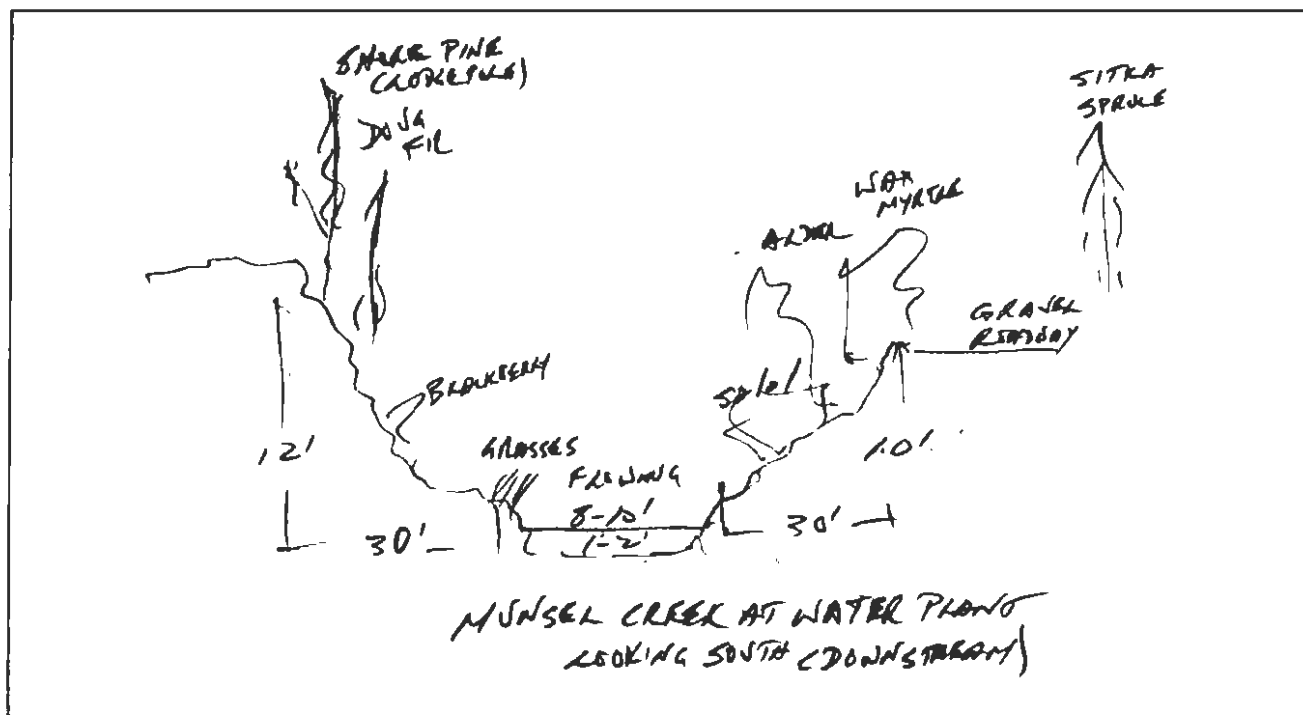 SHORE PINE
(LODGEPOLE)
DOUG
FIR
SITKA
SPRUCE
WAX
MYRTLE
ALDER
GRAVEL
ROADWAY
BLACKBERRY
salal
12'
GRASSES
FLOWING
10'
8-10'
30'
1-2'
30'
MUNSEL CREEK AT WATER PLANT
LOOKING SOUTH (DOWNSTREAM)